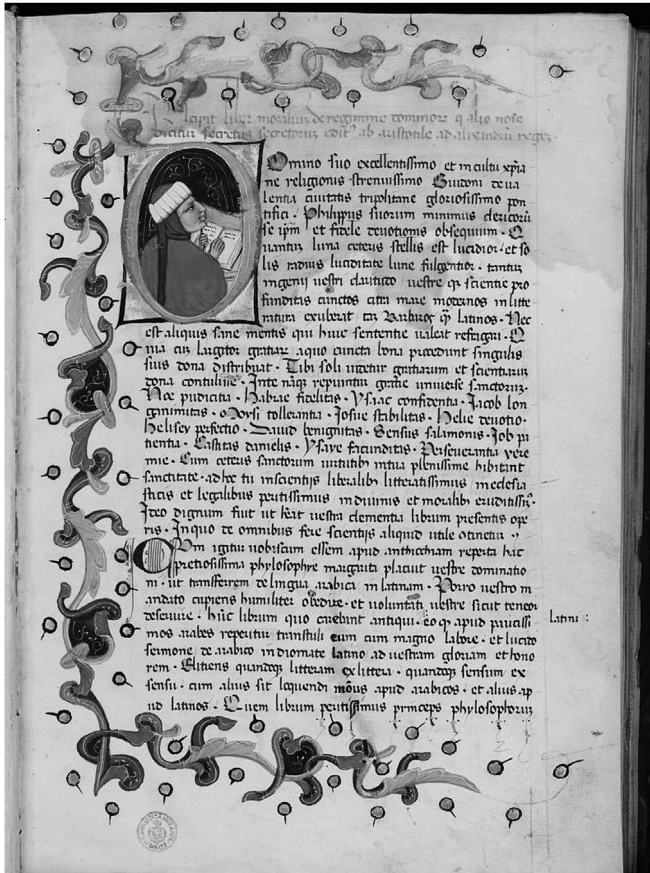 Incipit liber moralium de regimine dominorum q alio nomine
dicitur secretus secretorum edit' ab aristotile ad alexandrū regem.
Domino suo excellentissimo et in cultu xp̄ia
ne religionis strenuissimo Guidoni de ua
lentia ciuitatis tripolitane gloriosissimo pon
tifici · Philippus suorum minimus clericorū
se ip̄m et fidele deuotionis obsequium · Q
uantum luna ceteris stellis est lucidior · et so
lis radius luciditate lune fulgentior · tantum
ingenii uestri claritudo uestre q̄ scientie pro
funditas cunctos citra mare modernos in litte
ratura exuberat tam barbaros q̄ latinos · Nec
est aliquis sane mentis qui huic sententie ualeat refragari · Q
uia cum largitor gratiarum a quo cuncta bona procedunt singulis
suis dona distribuat · Tibi soli uidetur gratiarum et scientiarum
dona contulisse · In te nāq̄ reperiuntur gratie uniuerse sanctorum ·
Noe pudicitia · Habrae fidelitas · Ysaac confidentia · Jacob lon
ginimitas · Moysi tollerantia · Josue stabilitas · Helie deuotio ·
Helisey perfectio · Dauid benignitas · Sensus salamonis · Job pa
tientia · Castitas danielis · Ysaye facunditas · Perseuerantia yere
mie · Cum ceteris sanctorum uirtutibus in tua plenissime habitant
sanctitate · adhec tu in scientijs liberalibus litteratissimus in ecclesia
sticis et legalibus peritissimus in diuinis et moralibus eruditissimus ·
Ideo dignum fuit ut h̄eat uestra clementia librum presentis ope
ris · In quo de omnibus fere scientijs aliquid utile otinetur ·
Cum igitur uobiscum essem apud anthiochiam reperta hac
pretiosissima phylosophye margarita placuit uestre dominatio
ni · ut transferrem de lingua arabica in latinam · Porro uestro m
andato cupiens humiliter obedire · et uoluntati uestre sicut teneor
deseruire · hūc librum quo carebant antiqui · eo q̄ apud paucissi
mos arabes reperitur transtuli cum cum magno labore · et lucido
sermone de arabico in diomate latino ad uestram gloriam et hono
rem · Eliciens quandoq̄ litteram ex littera · quandoq̄ sensum ex
sensu · cum alius sit loquendi modus apud arabicos · et alius ap
ud latinos · Quem librum peritissimus princeps phylosophorum
latini :